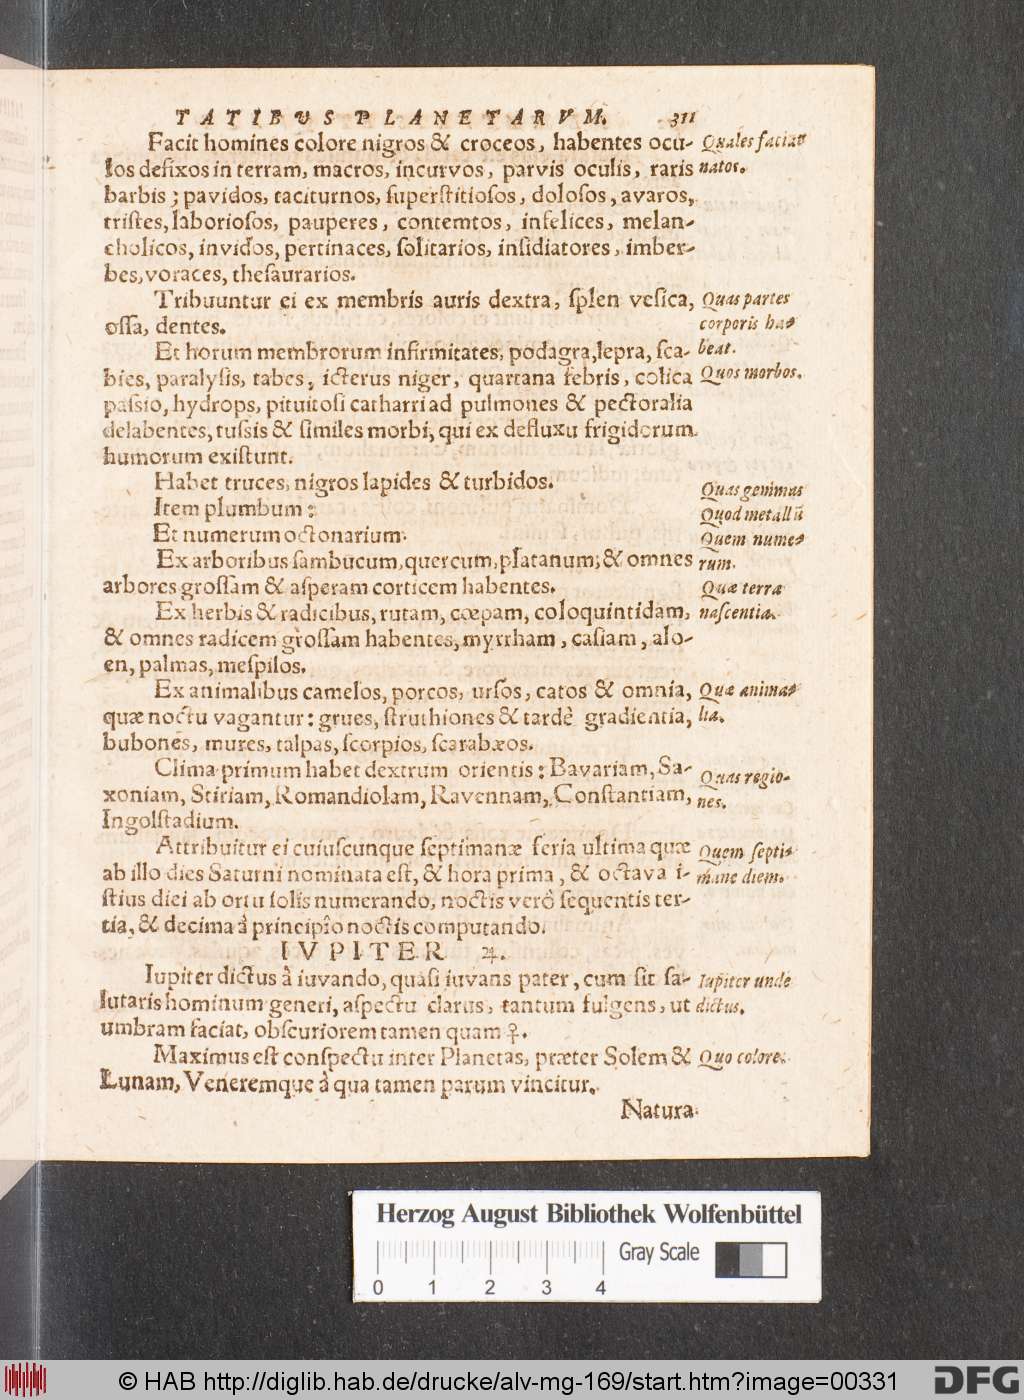 TATIBUS PLANETARVM. 311
Facit homines colore nigros & croceos, habentes ocu- Quales faciat
los defixos in terram, macros, incurvos, parvis oculis, raris natos.
barbis; pavidos, taciturnos, superstitiosos, dolosos, avaros,
tristes, laboriosos, pauperes, contemtos, infelices, melan-
cholicos, invidos, pertinaces, solitarios, insidiatores, imber-
bes, voraces, thesaurarios.
Tribuuntur ei ex membris auris dextra, splen vesica, Quas partes
ossa, dentes. corporis ha-
Et horum membrorum infirmitates, podagra, lepra, sca- beat.
bies, paralysis, tabes, icterus niger, quartana febris, colica Quos morbos.
passio, hydrops, pituitosi catharri ad pulmones & pectoralia
delabentes, tussis & similes morbi, qui ex defluxu frigidorum
humorum existunt.
Habet truces, nigros lapides & turbidos. Quas gemmas
Item plumbum: Quod metallū
Et numerum octonarium. Quem nume-
Ex arboribus sambucum, quercum, platanum; & omnes rum.
arbores grossam & asperam corticem habentes. Quæ terra
Ex herbis & radicibus, rutam, cœpam, coloquintidam, nascentia.
& omnes radicem grossam habentes, myrrham, casiam, alo-
en, palmas, mespilos.
Ex animalibus camelos, porcos, ursos, catos & omnia, Quæ anima-
quæ noctu vagantur: grues, struthiones & tardè gradientia, lia.
bubones, mures, talpas, scorpios, scarabæos.
Clima primum habet dextrum orientis: Bavariam, Sa- Quas regio-
xoniam, Stiriam, Romandiolam, Ravennam, Constantiam, nes.
Ingolstadium.
Attribuitur ei cuiuscunque septimanæ feria ultima quæ Quem septi-
ab illo dies Saturni nominata est, & hora prima, & octava i- manæ diem.
stius diei ab ortu solis numerando, noctis verò sequentis ter-
tia, & decima à principio noctis computando.
IVPITER ♃.
Iupiter dictus à iuvando, quasi iuvans pater, cum sit sa- Iupiter unde
lutaris hominum generi, aspectu clarus, tantum fulgens, ut dictus.
umbram faciat, obscuriorem tamen quam ♀.
Maximus est conspectu inter Planetas, præter Solem & Quo colore.
Lunam, Veneremque à qua tamen parum vincitur.
Natura
Herzog August Bibliothek Wolfenbüttel
Gray Scale
0 1 2 3 4
© HAB http://diglib.hab.de/drucke/alv-mg-169/start.htm?image=00331
DFG